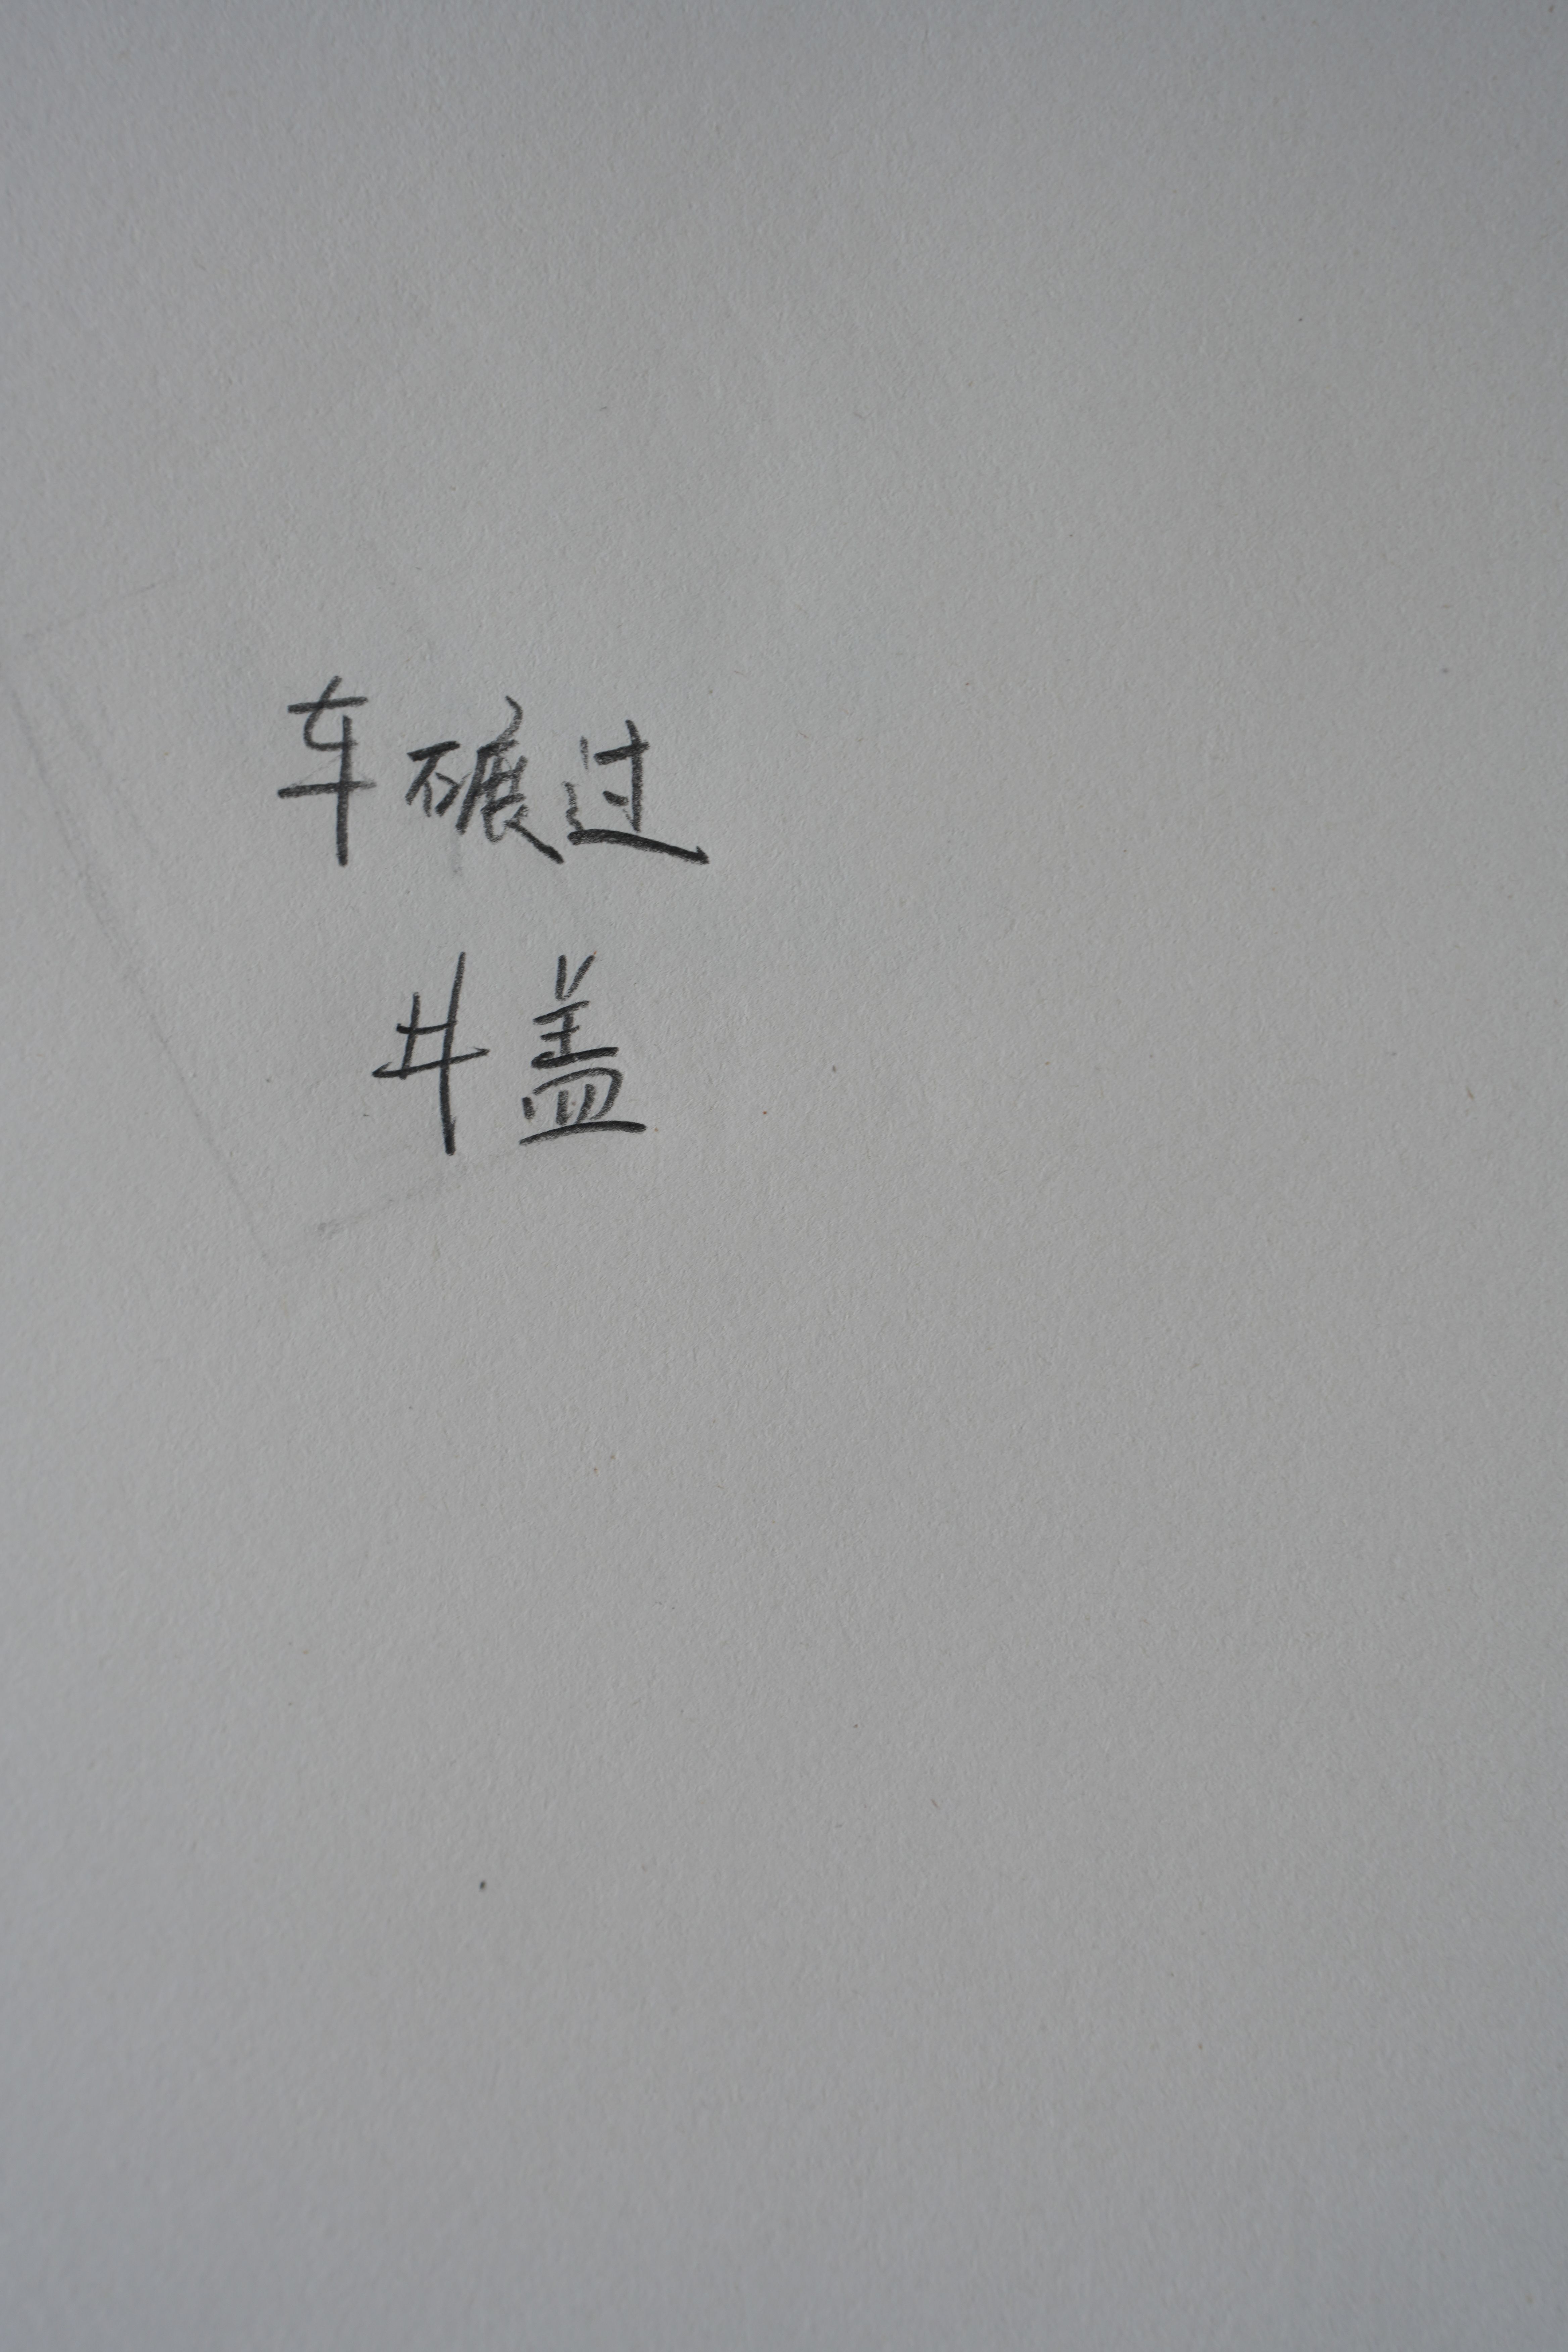 车碾过
井盖